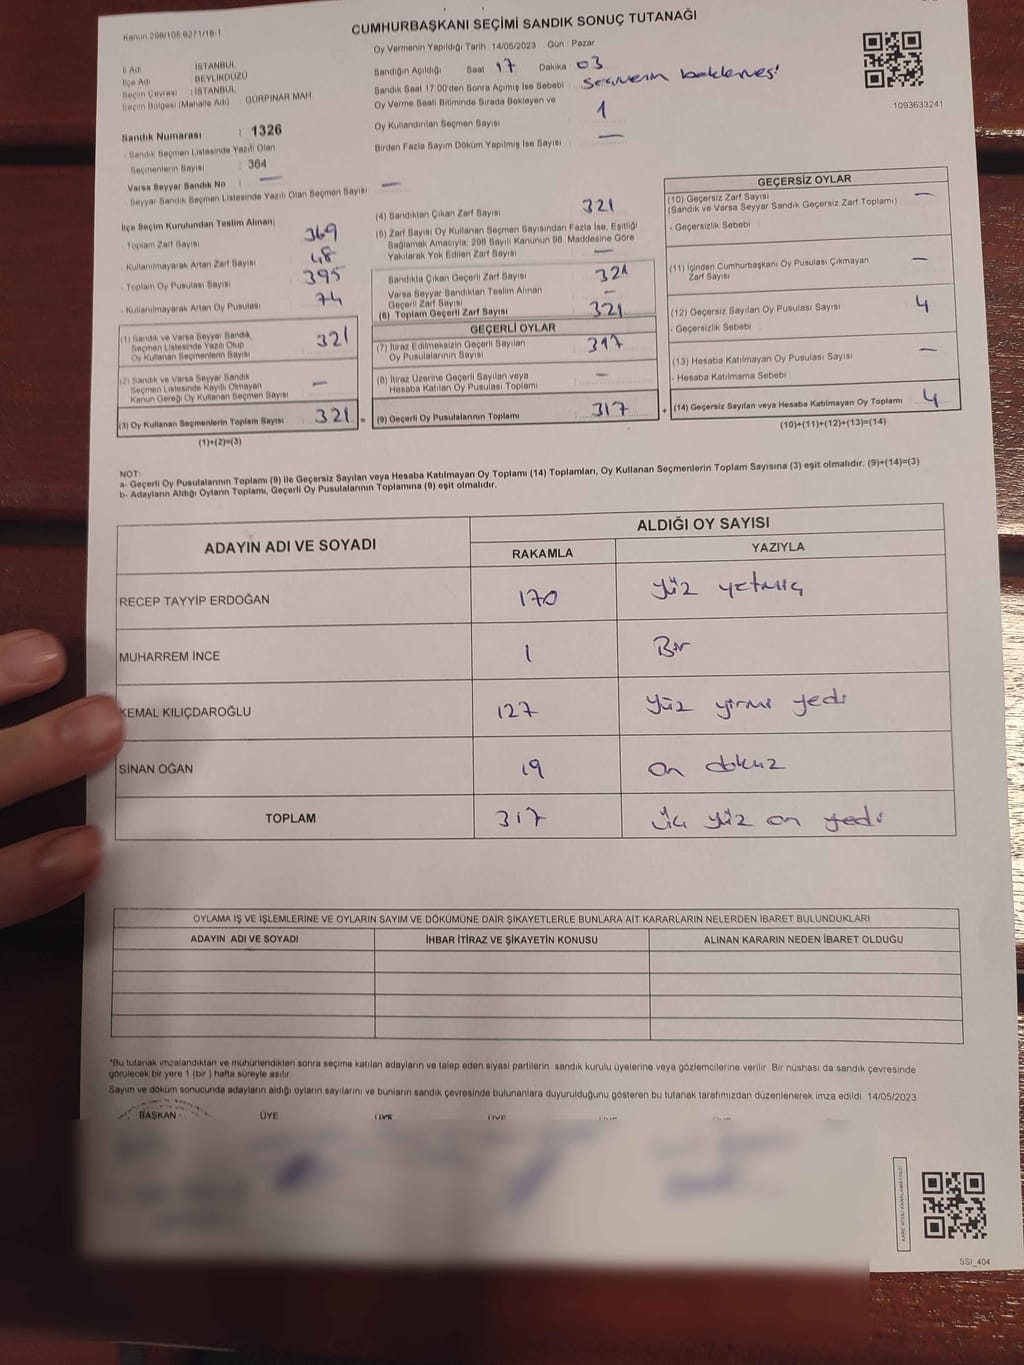 Kanun 298/105 6271/18-1
CUMHURBAŞKANI SEÇİMİ SANDIK SONUÇ TUTANAĞI
Oy Vermenin Yapıldığı Tarih : 14/05/2023 Gün : Pazar
İl Adı : İSTANBUL
İlçe Adı : BEYLİKDÜZÜ
Seçim Çevresi : İSTANBUL
Seçim Bölgesi (Mahalle Adı) : GÜRPINAR MAH.
Sandık Numarası : 1326
- Sandık Seçmen Listesinde Yazılı Olan
Seçmenlerin Sayısı : 364
Varsa Seyyar Sandık No : —
- Seyyar Sandık Seçmen Listesinde Yazılı Olan Seçmen Sayısı : —
Sandığın Açıldığı Saat 17 Dakika 03
Sandık Saat 17.00'den Sonra Açılmış İse Sebebi : Seçmenin beklemesi
Oy Verme Saati Bitiminde Sırada Bekleyen ve
Oy Kullandırılan Seçmen Sayısı : 1
Birden Fazla Sayım Döküm Yapılmış İse Sayısı : —
1093633241
İlçe Seçim Kurulundan Teslim Alınan;
- Toplam Zarf Sayısı 369
- Kullanılmayarak Artan Zarf Sayısı 48
- Toplam Oy Pusulası Sayısı 395
- Kullanılmayarak Artan Oy Pusulası 74
(1) Sandık ve Varsa Seyyar Sandık
Seçmen Listesinde Yazılı Olup
Oy Kullanan Seçmenlerin Sayısı 321
(2) Sandık ve Varsa Seyyar Sandık
Seçmen Listesinde Kayıtlı Olmayan
Kanun Gereği Oy Kullanan Seçmen Sayısı —
(3) Oy Kullanan Seçmenlerin Toplam Sayısı 321 =
(1)+(2)=(3)
(4) Sandıktan Çıkan Zarf Sayısı 321
(5) Zarf Sayısı Oy Kullanan Seçmen Sayısından Fazla İse, Eşitliği
Sağlamak Amacıyla, 298 Sayılı Kanunun 98. Maddesine Göre
Yakılarak Yok Edilen Zarf Sayısı —
Sandıkta Çıkan Geçerli Zarf Sayısı 321
Varsa Seyyar Sandıktan Teslim Alınan
Geçerli Zarf Sayısı —
(6) Toplam Geçerli Zarf Sayısı 321
GEÇERLİ OYLAR
(7) İtiraz Edilmeksizin Geçerli Sayılan
Oy Pusulalarının Sayısı 317
(8) İtiraz Üzerine Geçerli Sayılan veya
Hesaba Katılan Oy Pusulası Toplamı —
(9) Geçerli Oy Pusulalarının Toplamı 317 +
GEÇERSİZ OYLAR
(10) Geçersiz Zarf Sayısı —
(Sandık ve Varsa Seyyar Sandık Geçersiz Zarf Toplamı)
- Geçersizlik Sebebi
(11) İçinden Cumhurbaşkanı Oy Pusulası Çıkmayan
Zarf Sayısı —
(12) Geçersiz Sayılan Oy Pusulası Sayısı 4
- Geçersizlik Sebebi
(13) Hesaba Katılmayan Oy Pusulası Sayısı —
- Hesaba Katılmama Sebebi
(14) Geçersiz Sayılan veya Hesaba Katılmayan Oy Toplamı 4
(10)+(11)+(12)+(13)=(14)
NOT:
a- Geçerli Oy Pusulalarının Toplamı (9) ile Geçersiz Sayılan veya Hesaba Katılmayan Oy Toplamı (14) Toplamları, Oy Kullanan Seçmenlerin Toplam Sayısına (3) eşit olmalıdır. (9)+(14)=(3)
b- Adayların Aldığı Oyların Toplamı, Geçerli Oy Pusulalarının Toplamına (9) eşit olmalıdır.
ADAYIN ADI VE SOYADI ALDIĞI OY SAYISI
RAKAMLA YAZIYLA
RECEP TAYYİP ERDOĞAN 170 Yüz yetmiş
MUHARREM İNCE 1 Bir
KEMAL KILIÇDAROĞLU 127 Yüz yirmi yedi
SİNAN OĞAN 19 On dokuz
TOPLAM 317 Üç yüz on yedi
OYLAMA İŞ VE İŞLEMLERİNE VE OYLARIN SAYIM VE DÖKÜMÜNE DAİR ŞİKAYETLERLE BUNLARA AİT KARARLARIN NELERDEN İBARET BULUNDUKLARI
ADAYIN ADI VE SOYADI İHBAR İTİRAZ VE ŞİKAYETİN KONUSU ALINAN KARARIN NEDEN İBARET OLDUĞU
*Bu tutanak imzalandıktan ve mühürlendikten sonra seçime katılan adayların ve talep eden siyasi partilerin sandık kurulu üyelerine veya gözlemcilerine verilir. Bir nüshası da sandık çevresinde
görülecek bir yere 1 (bir ) hafta süreyle asılır.
Sayım ve döküm sonucunda adayların aldığı oyların sayılarını ve bunların sandık çevresinde bulunanlara duyurulduğunu gösteren bu tutanak tarafımızdan düzenlenerek imza edildi. 14/05/2023
BAŞKAN ÜYE ÜYE ÜYE
KARE KODU KARALAMAYINIZ!
SSI_404